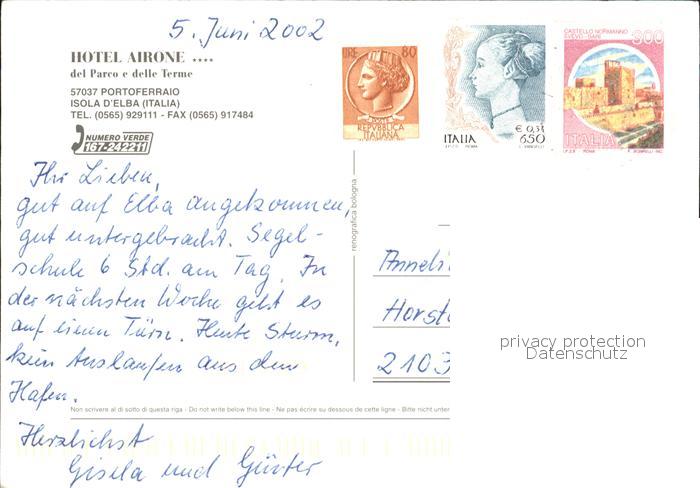 5. Juni 2002
HOTEL AIRONE ****
del Parco e delle Terme
57037 PORTOFERRAIO
ISOLA D'ELBA (ITALIA)
TEL. (0565) 929111 - FAX (0565) 917484
NUMERO VERDE
167-242211
LIRE 80
POSTE
REPVBBLICA
ITALIANA
ITALIA
€ 0,34
650
I.P.Z.S. ROMA
CASTELLO NORMANNO
SVEVO - BARI
900
ITALIA
I.P.Z.S. ROMA
Ihr Lieben,
gut auf Elba angekommen,
gut untergebracht. Segel-
schule 6 Std. am Tag. In
der nächsten Woche geht es
auf einen Törn. Heute Sturm,
kein Auslaufen aus dem
Hafen.
Herzlichst
Gisela und Günter
renografica bologna
Anneli
Horst
2103
privacy protection
Datenschutz
Non scrivere al di sotto di questa riga - Do not write below this line - Ne pas écrire su dessous de cette ligne - Bitte nicht unter